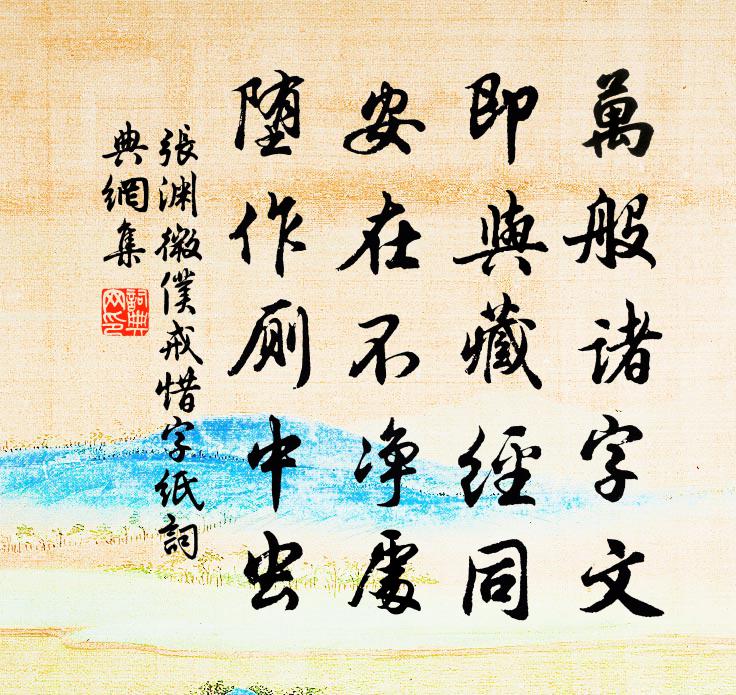 萬般諸字文
即與藏經同
安在不净處
堕作厕中虫
張渊微僕戒惜字紙詞
典網集
詞典网印